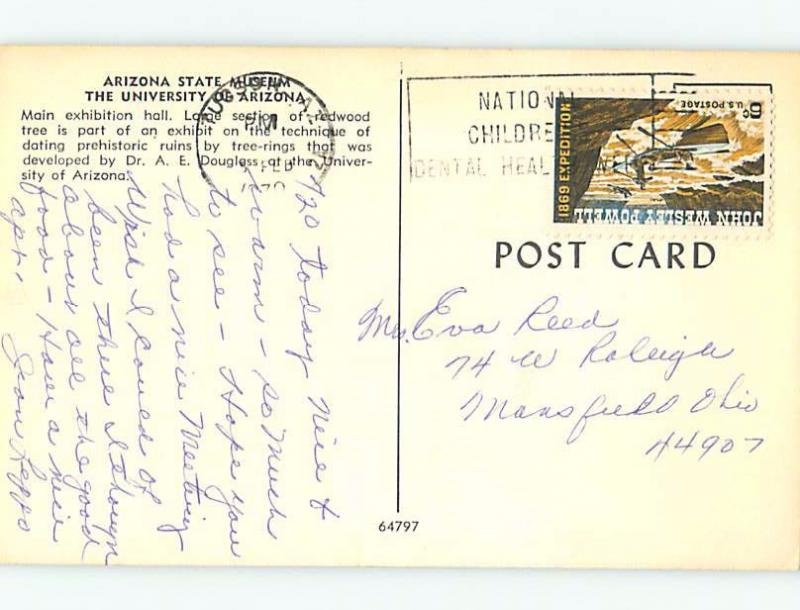 ARIZONA STATE MUSEUM
THE UNIVERSITY OF ARIZONA
Main exhibition hall. Large section of redwood
tree is part of an exhibit on the technique of
dating prehistoric ruins by tree-rings that was
developed by Dr. A. E. Douglass at the Univer-
sity of Arizona.
TUCSON, ARIZ
PM
FEB
1970
NATIONAL
CHILDREN
DENTAL HEALTH WEEK
1869 EXPEDITION
JOHN WESLEY POWELL
6c
U.S. POSTAGE
POST CARD
Mrs. Eva Reed
74 W Raleigh
Mansfield Ohio
44907
64797
today Nice &
warm - so much
to see - Hope you
had a nice Meeting
Wish I could of
been there I though
about all the good
food - Have a nice
apr.
Jean Leppo